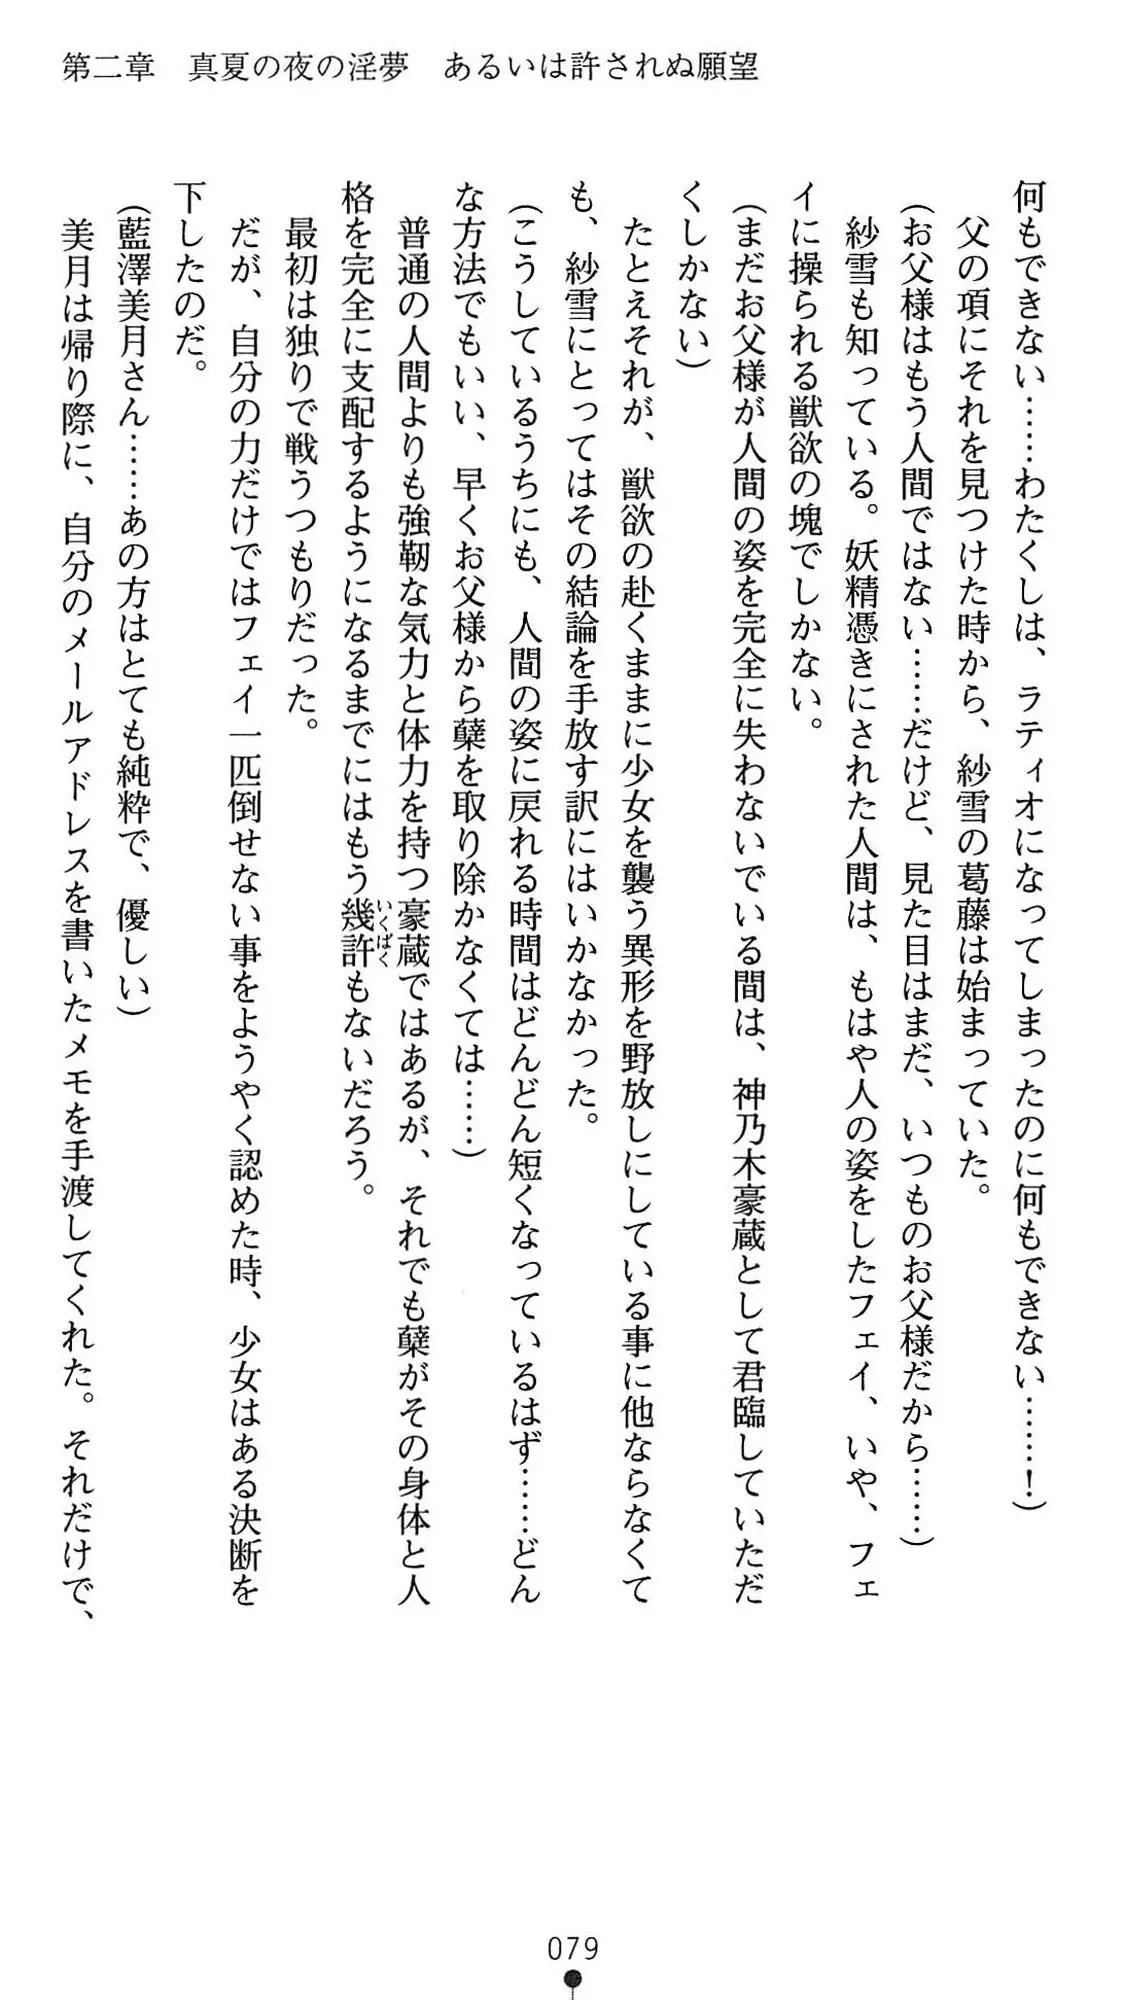 第二章　真夏の夜の淫夢　あるいは許されぬ願望
何もできない……わたくしは、ラティオになってしまったのに何もできない……！）
　父の項にそれを見つけた時から、紗雪の葛藤は始まっていた。
（お父様はもう人間ではない……だけど、見た目はまだ、いつものお父様だから……）
　紗雪も知っている。妖精憑きにされた人間は、もはや人の姿をしたフェイ、いや、フェ
イに操られる獣欲の塊でしかない。
（まだお父様が人間の姿を完全に失わないでいる間は、神乃木豪蔵として君臨していただ
くしかない）
　たとえそれが、獣欲の赴くままに少女を襲う異形を野放しにしている事に他ならなくて
も、紗雪にとってはその結論を手放す訳にはいかなかった。
（こうしているうちにも、人間の姿に戻れる時間はどんどん短くなっているはず……どん
な方法でもいい、早くお父様から蘖を取り除かなくては……）
　普通の人間よりも強靭な気力と体力を持つ豪蔵ではあるが、それでも蘖がその身体と人
格を完全に支配するようになるまでにはもう幾許もないだろう。
いくばく
　最初は独りで戦うつもりだった。
　だが、自分の力だけではフェイ一匹倒せない事をようやく認めた時、少女はある決断を
下したのだ。
（藍澤美月さん……あの方はとても純粋で、優しい）
　美月は帰り際に、自分のメールアドレスを書いたメモを手渡してくれた。それだけで、
079